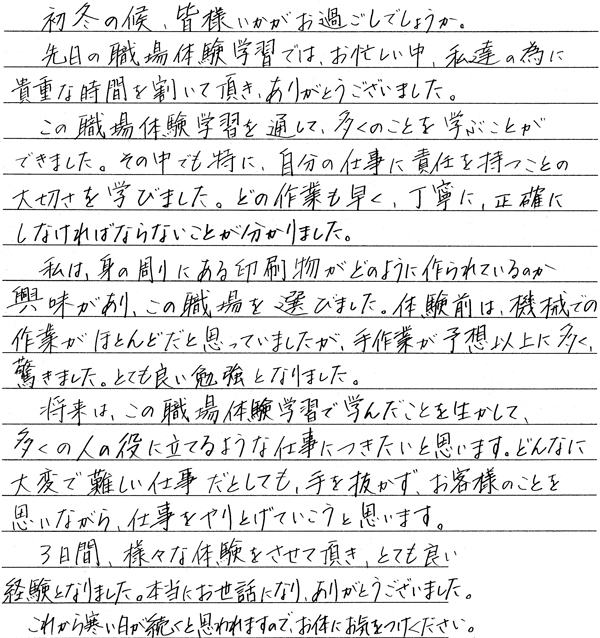 初冬の候、皆様いかがお過ごしでしょうか。
先日の職場体験学習では、お忙しい中、私達の為に
貴重な時間を割いて頂き、ありがとうございました。
この職場体験学習を通して、多くのことを学ぶことが
できました。その中でも特に、自分の仕事に責任を持つことの
大切さを学びました。どの作業も早く、丁寧に、正確に
しなければならないことが分かりました。
私は、身の周りにある印刷物がどのように作られているのか
興味があり、この職場を選びました。体験前は、機械での
作業がほとんどだと思っていましたが、手作業が予想以上に多く、
驚きました。とても良い勉強となりました。
将来は、この職場体験学習で学んだことを生かして、
多くの人の役に立てるような仕事につきたいと思います。どんなに
大変で難しい仕事だとしても、手を抜かず、お客様のことを
思いながら、仕事をやりとげていこうと思います。
3日間、様々な体験をさせて頂き、とても良い
経験となりました。本当にお世話になり、ありがとうございました。
これから寒い日が続くと思われますので、お体にお気をつけください。